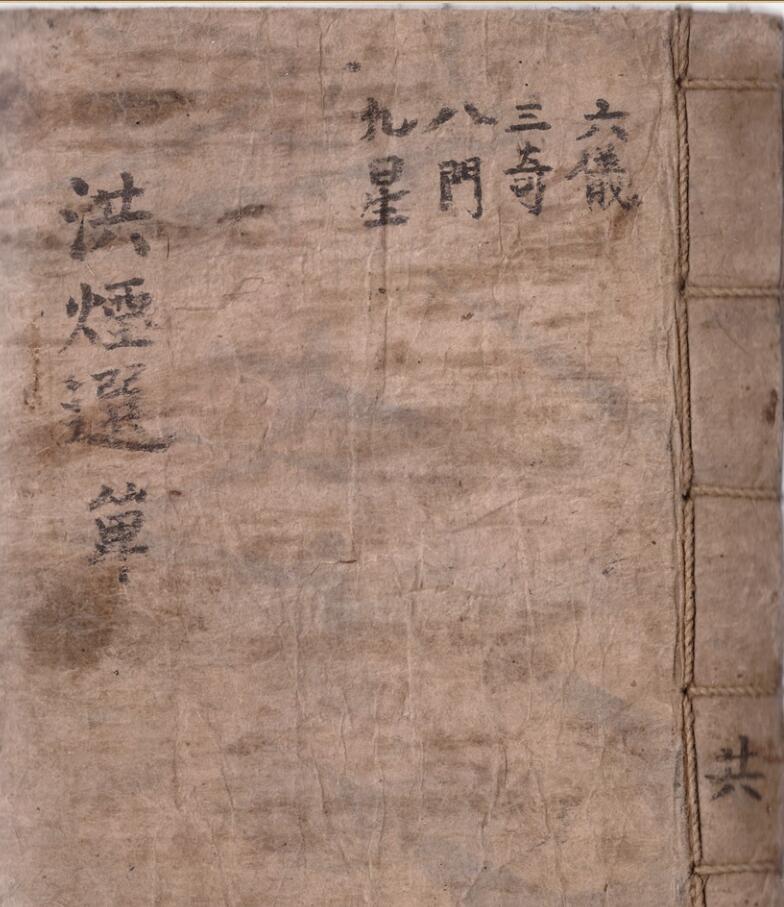 六儀
三奇
八門
九星
洪煙選 單
共